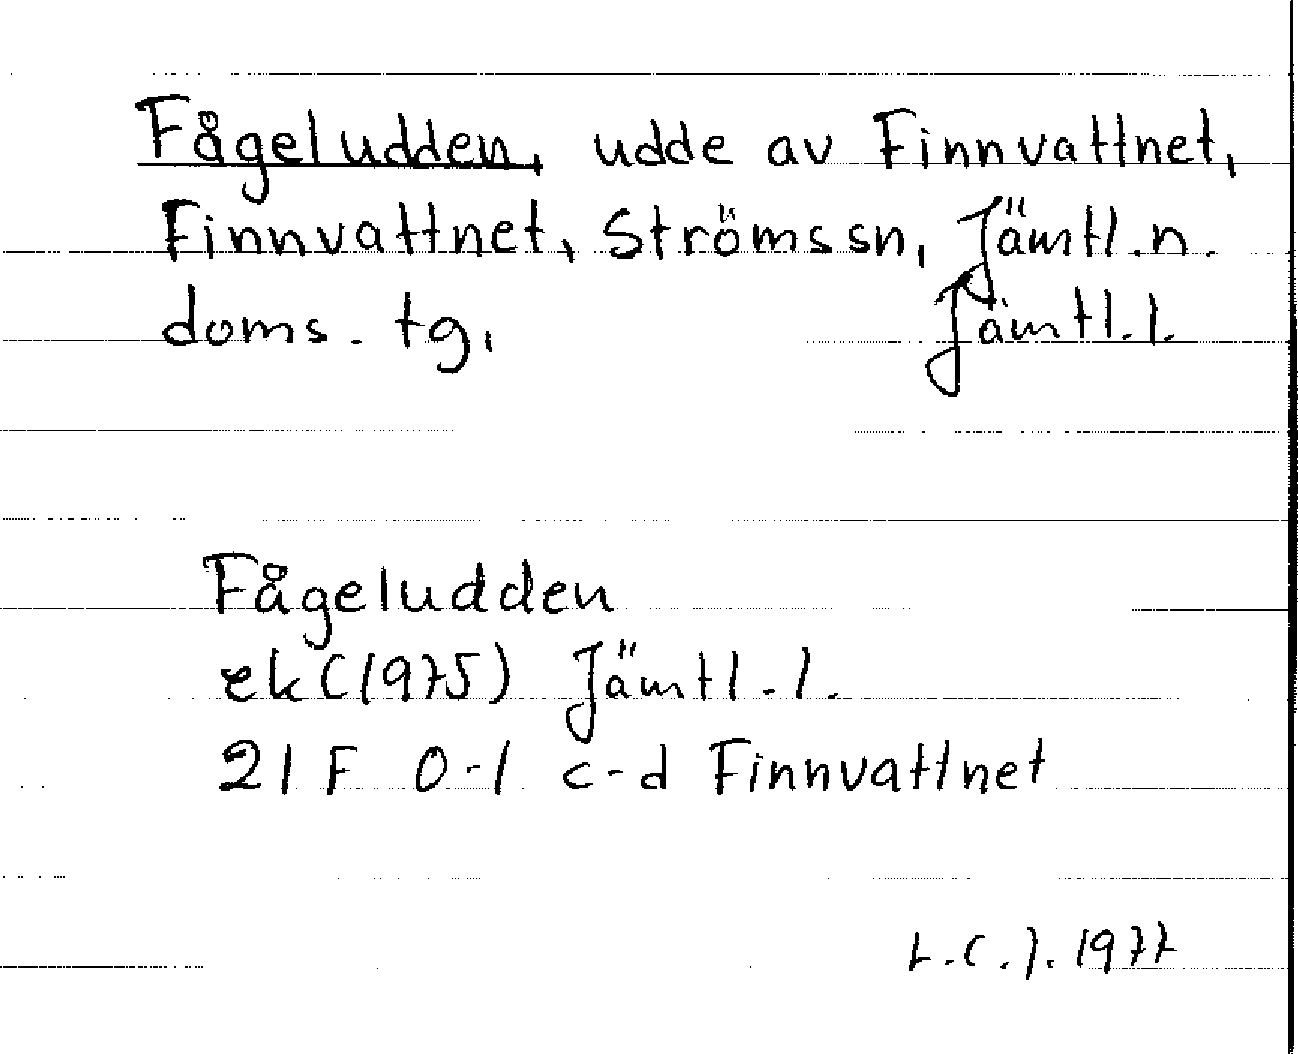 Fågeludden, udde av Finnvattnet,
Finnvattnet, Strömssn, Jämtl.n.
doms. tg, Jämtl.l.
Fågeludden
ek (1975) Jämtl.l.
21 F 0-1 c-d Finnvattnet
L.C.J. 1977